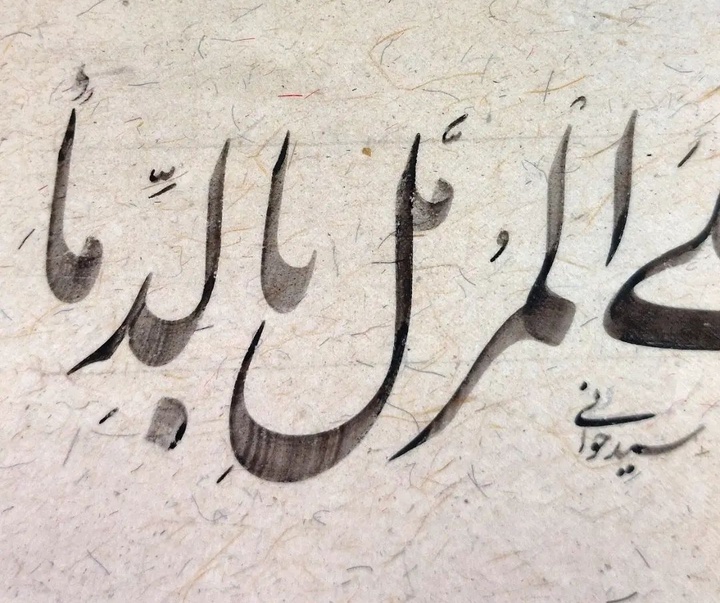 عَلَى الْمُرمَّلِ بالدِّماءِ
سعید جوانی